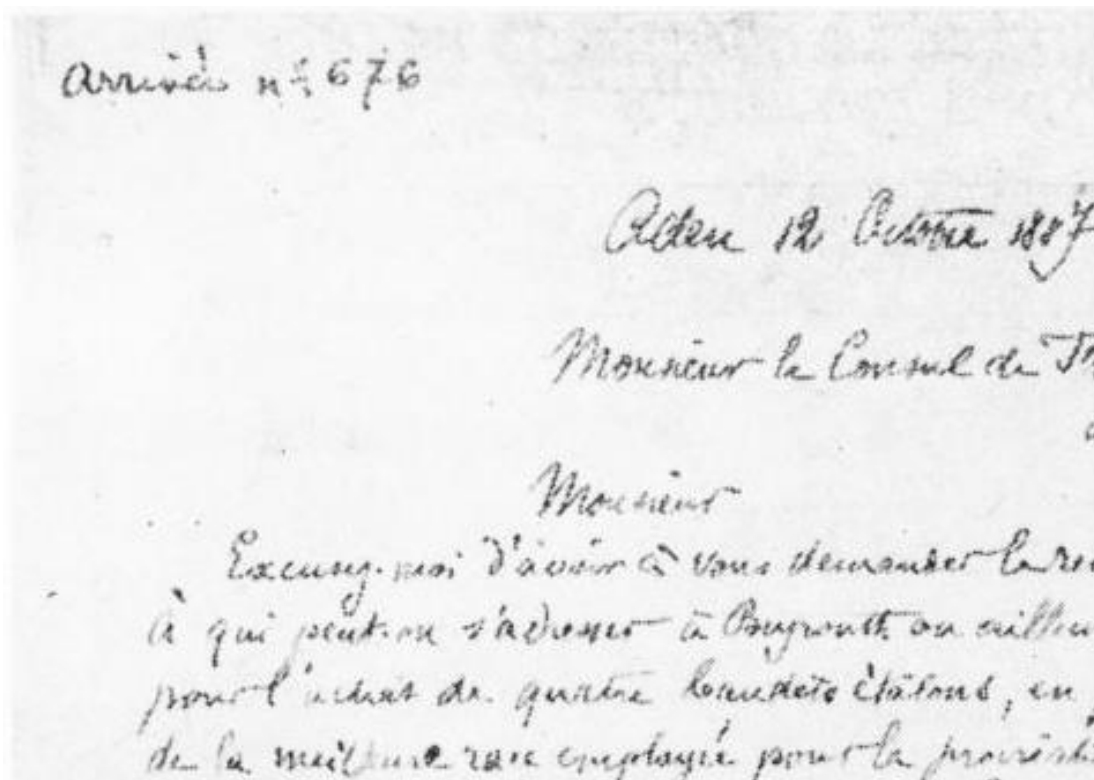 Arrivée n° 676
Aden 12 Octobre 1887
Monsieur le Consul de Fr
Monsieur
Excusez-moi d'avoir à vous demander le ren
À qui peut-on s'adresser à Beyrouth ou ailleu
pour l'achat de quatre baudets étalons, en p
de la meilleure race employée pour la procréati